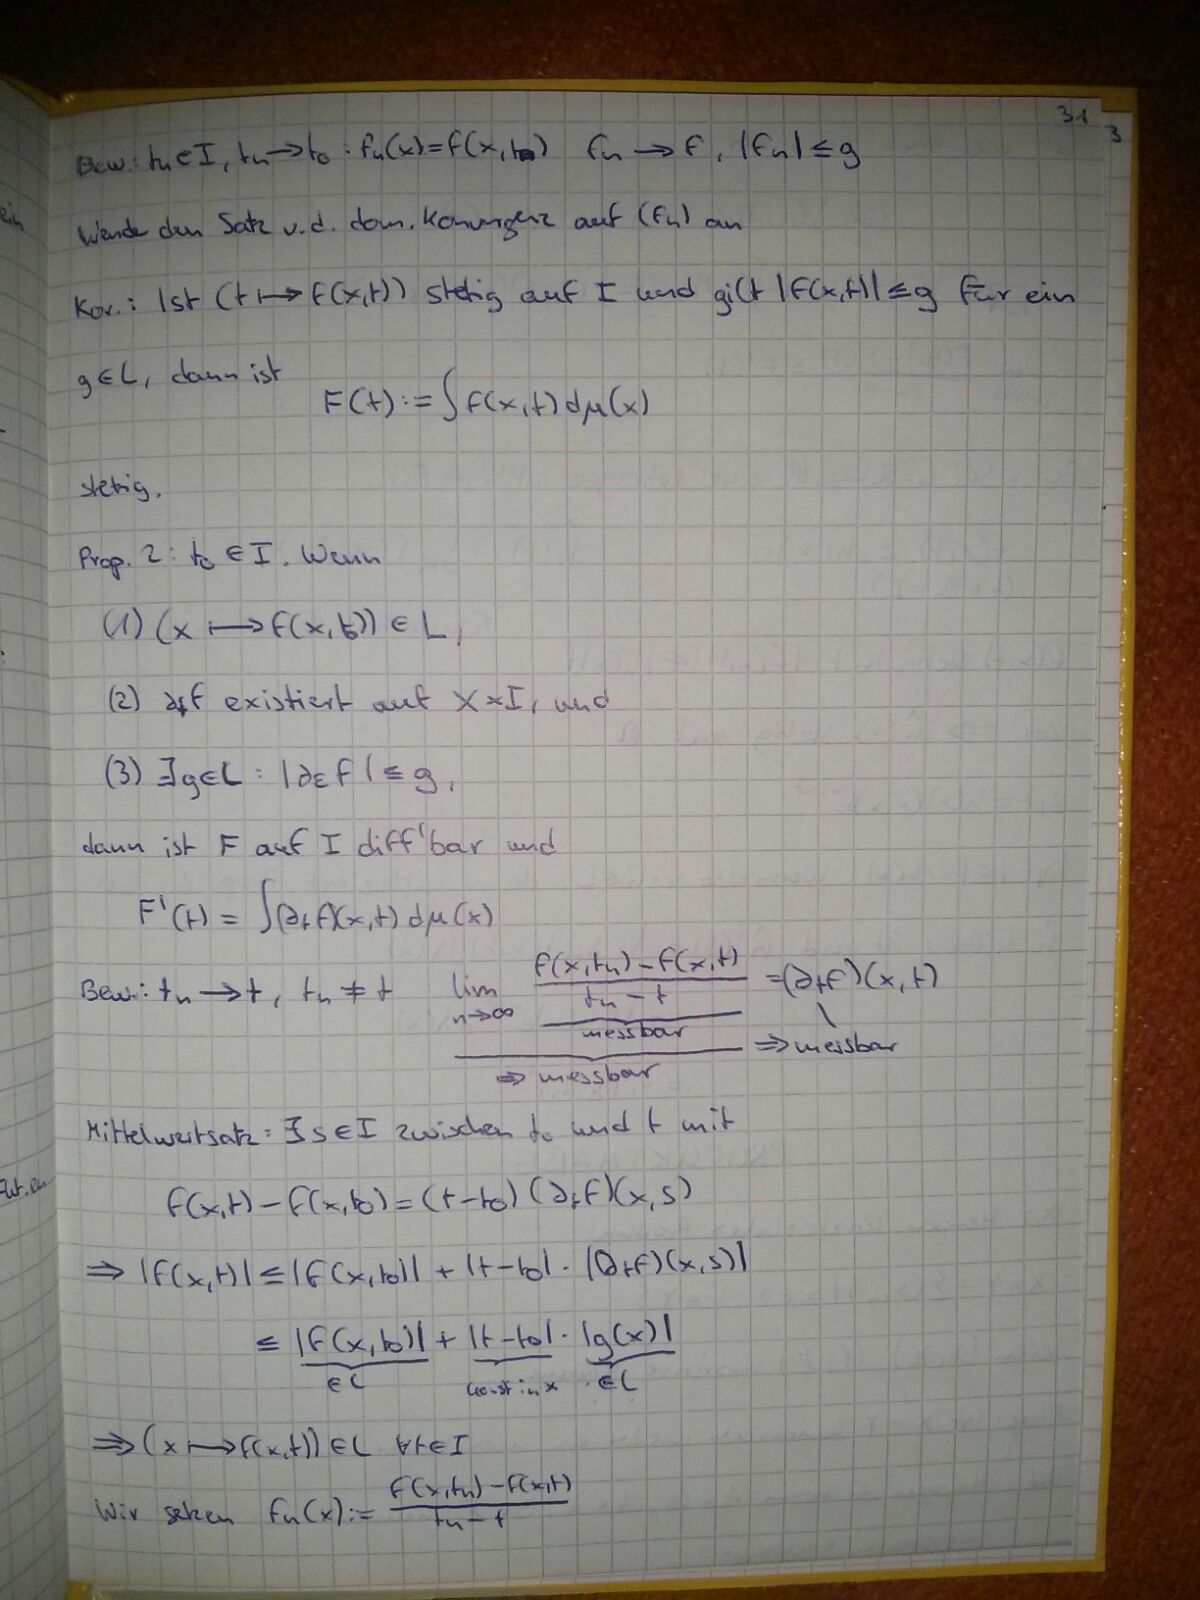 31
3
Bew.: tₙ∈I, tₙ→t₀ : fₙ(x)=f(x,tₙ) fₙ→f, |fₙ|≤g
Wende den Satz v.d. dom. Konvergenz auf (fₙ) an
Kor.: Ist (t↦f(x,t)) stetig auf I und gilt |f(x,t)|≤g für ein
g∈L, dann ist
F(t):=∫f(x,t)dμ(x)
stetig.
Prop. 2: t₀∈I. Wenn
(1) (x↦f(x,t₀))∈L,
(2) ∂ₜf existiert auf X×I, und
(3) ∃g∈L: |∂ₜf|≤g,
dann ist F auf I diff'bar und
F'(t) = ∫(∂ₜf)(x,t)dμ(x)
Bew.: tₙ→t, tₙ≠t lim n→∞ (f(x,tₙ)−f(x,t))/(tₙ−t) =(∂ₜf)(x,t)
messbar ⇒messbar
⇒ messbar
Mittelwertsatz: ∃s∈I zwischen t₀ und t mit
f(x,t)−f(x,t₀)=(t−t₀)(∂ₜf)(x,s)
⇒ |f(x,t)|≤|f(x,t₀)|+|t−t₀|·|(∂ₜf)(x,s)|
≤ |f(x,t₀)|+|t−t₀|·|g(x)|
∈L const in x ∈L
⇒(x↦f(x,t))∈L ∀t∈I
Wir setzen fₙ(x):= (f(x,tₙ)−f(x,t))/(tₙ−t)
ein